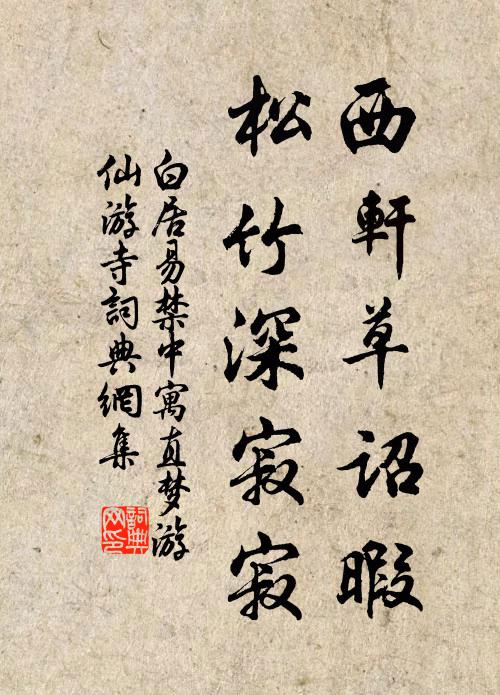 西軒草詔暇
松竹深寂寂
白居易禁中寓直梦游
仙游寺詞典網集
詞典网印